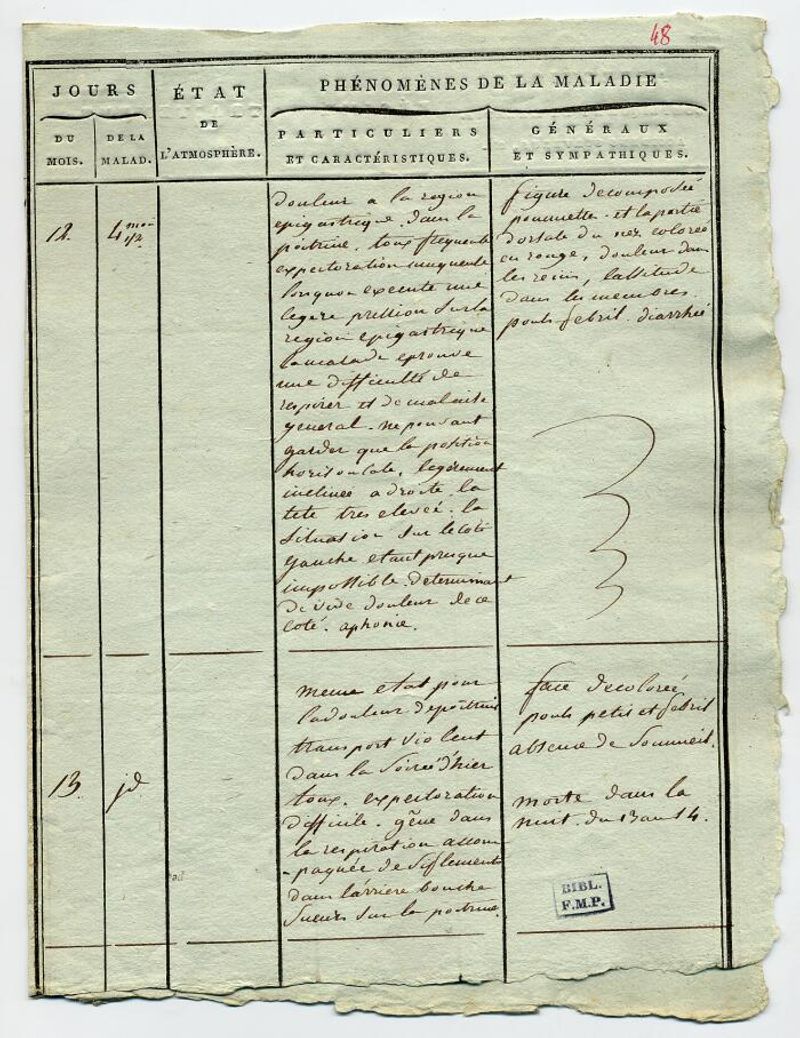 48
JOURS
ÉTAT
PHÉNOMÈNES DE LA MALADIE
DU
MOIS.
DE LA
MALAD.
DE
L'ATMOSPHÈRE.
PARTICULIERS
ET CARACTÉRISTIQUES.
GÉNÉRAUX
ET SYMPATHIQUES.
12.
4 moi
1/2
douleur a la region
epigastrique. dans la
poitrine. toux frequente
expectoration muqueuse
lorsquon execute une
legere pression sur la
region epigastrique
la malade eprouve
une difficulté de
respirer et de malaise
general. ne pouvant
garder que la position
horisontale, legèrement
inclinée a droite. la
tete tres elevée. la
situation sur le coté
gauche etant presque
impossible. determinant
de vive douleur de ce
coté. aphonie.
figure decomposée
pommettes et la partie
dorsale du nez colorée
en rouge, douleur dans
les reins, lassitude
dans les membres.
pouls febril. diarrhée
13.
id
meme etat pour
la douleur de poitrine
transport violent
dans la soirée d'hier
toux. expectoration
difficile. gêne dans
la respiration accom
-pagnée de siflements
dans l'arriere bouche
sueurs sur la poitrine.
face decolorée
pouls petit et febril
absence de sommeil.
morte dans la
nuit du 13 au 14.
BIBL.
F.M.P.